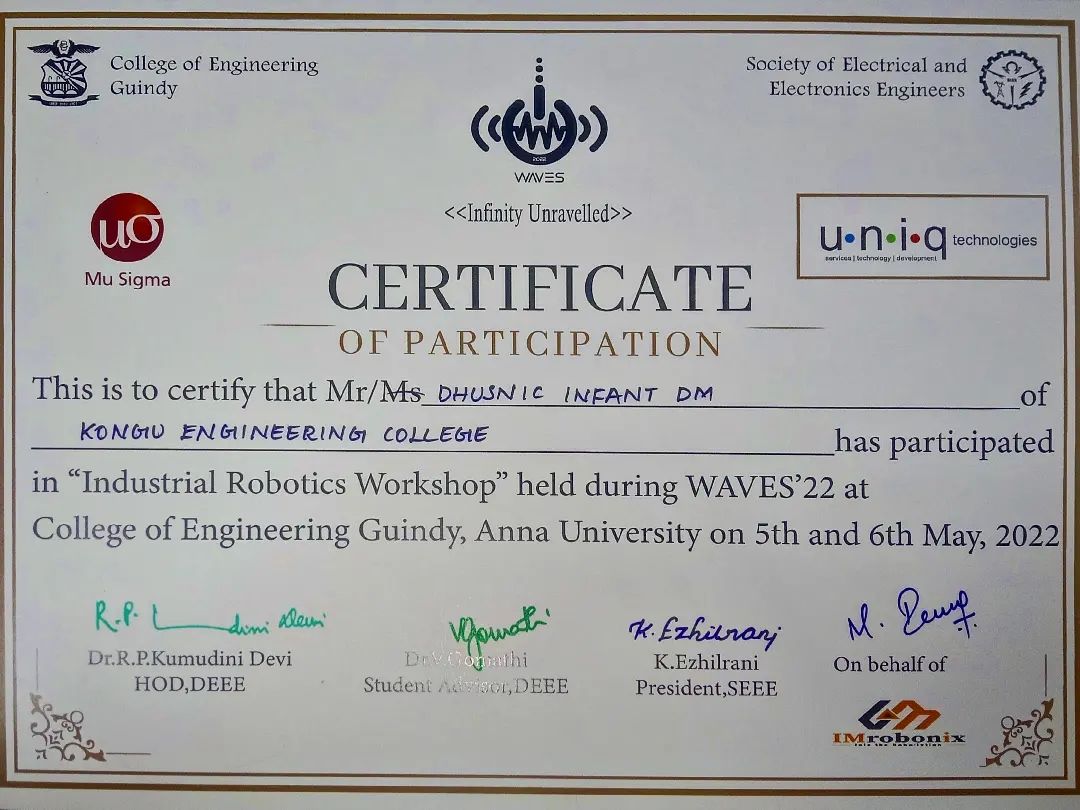 College of Engineering
Guindy
Society of Electrical and
Electronics Engineers
2022
WAVES
<<Infinity Unravelled>>
μσ
Mu Sigma
u·n·i·q technologies
services | technology | development
CERTIFICATE
OF PARTICIPATION
This is to certify that Mr/Ms DHUSNIC INFANT DM of
KONGU ENGINEERING COLLEGE has participated
in “Industrial Robotics Workshop” held during WAVES’22 at
College of Engineering Guindy, Anna University on 5th and 6th May, 2022
R.P. K. Ezhilrani M.
Dr.R.P.Kumudini Devi
HOD,DEEE
Dr.V.Gomathi
Student Advisor,DEEE
K.Ezhilrani
President,SEEE
On behalf of
IMrobonix